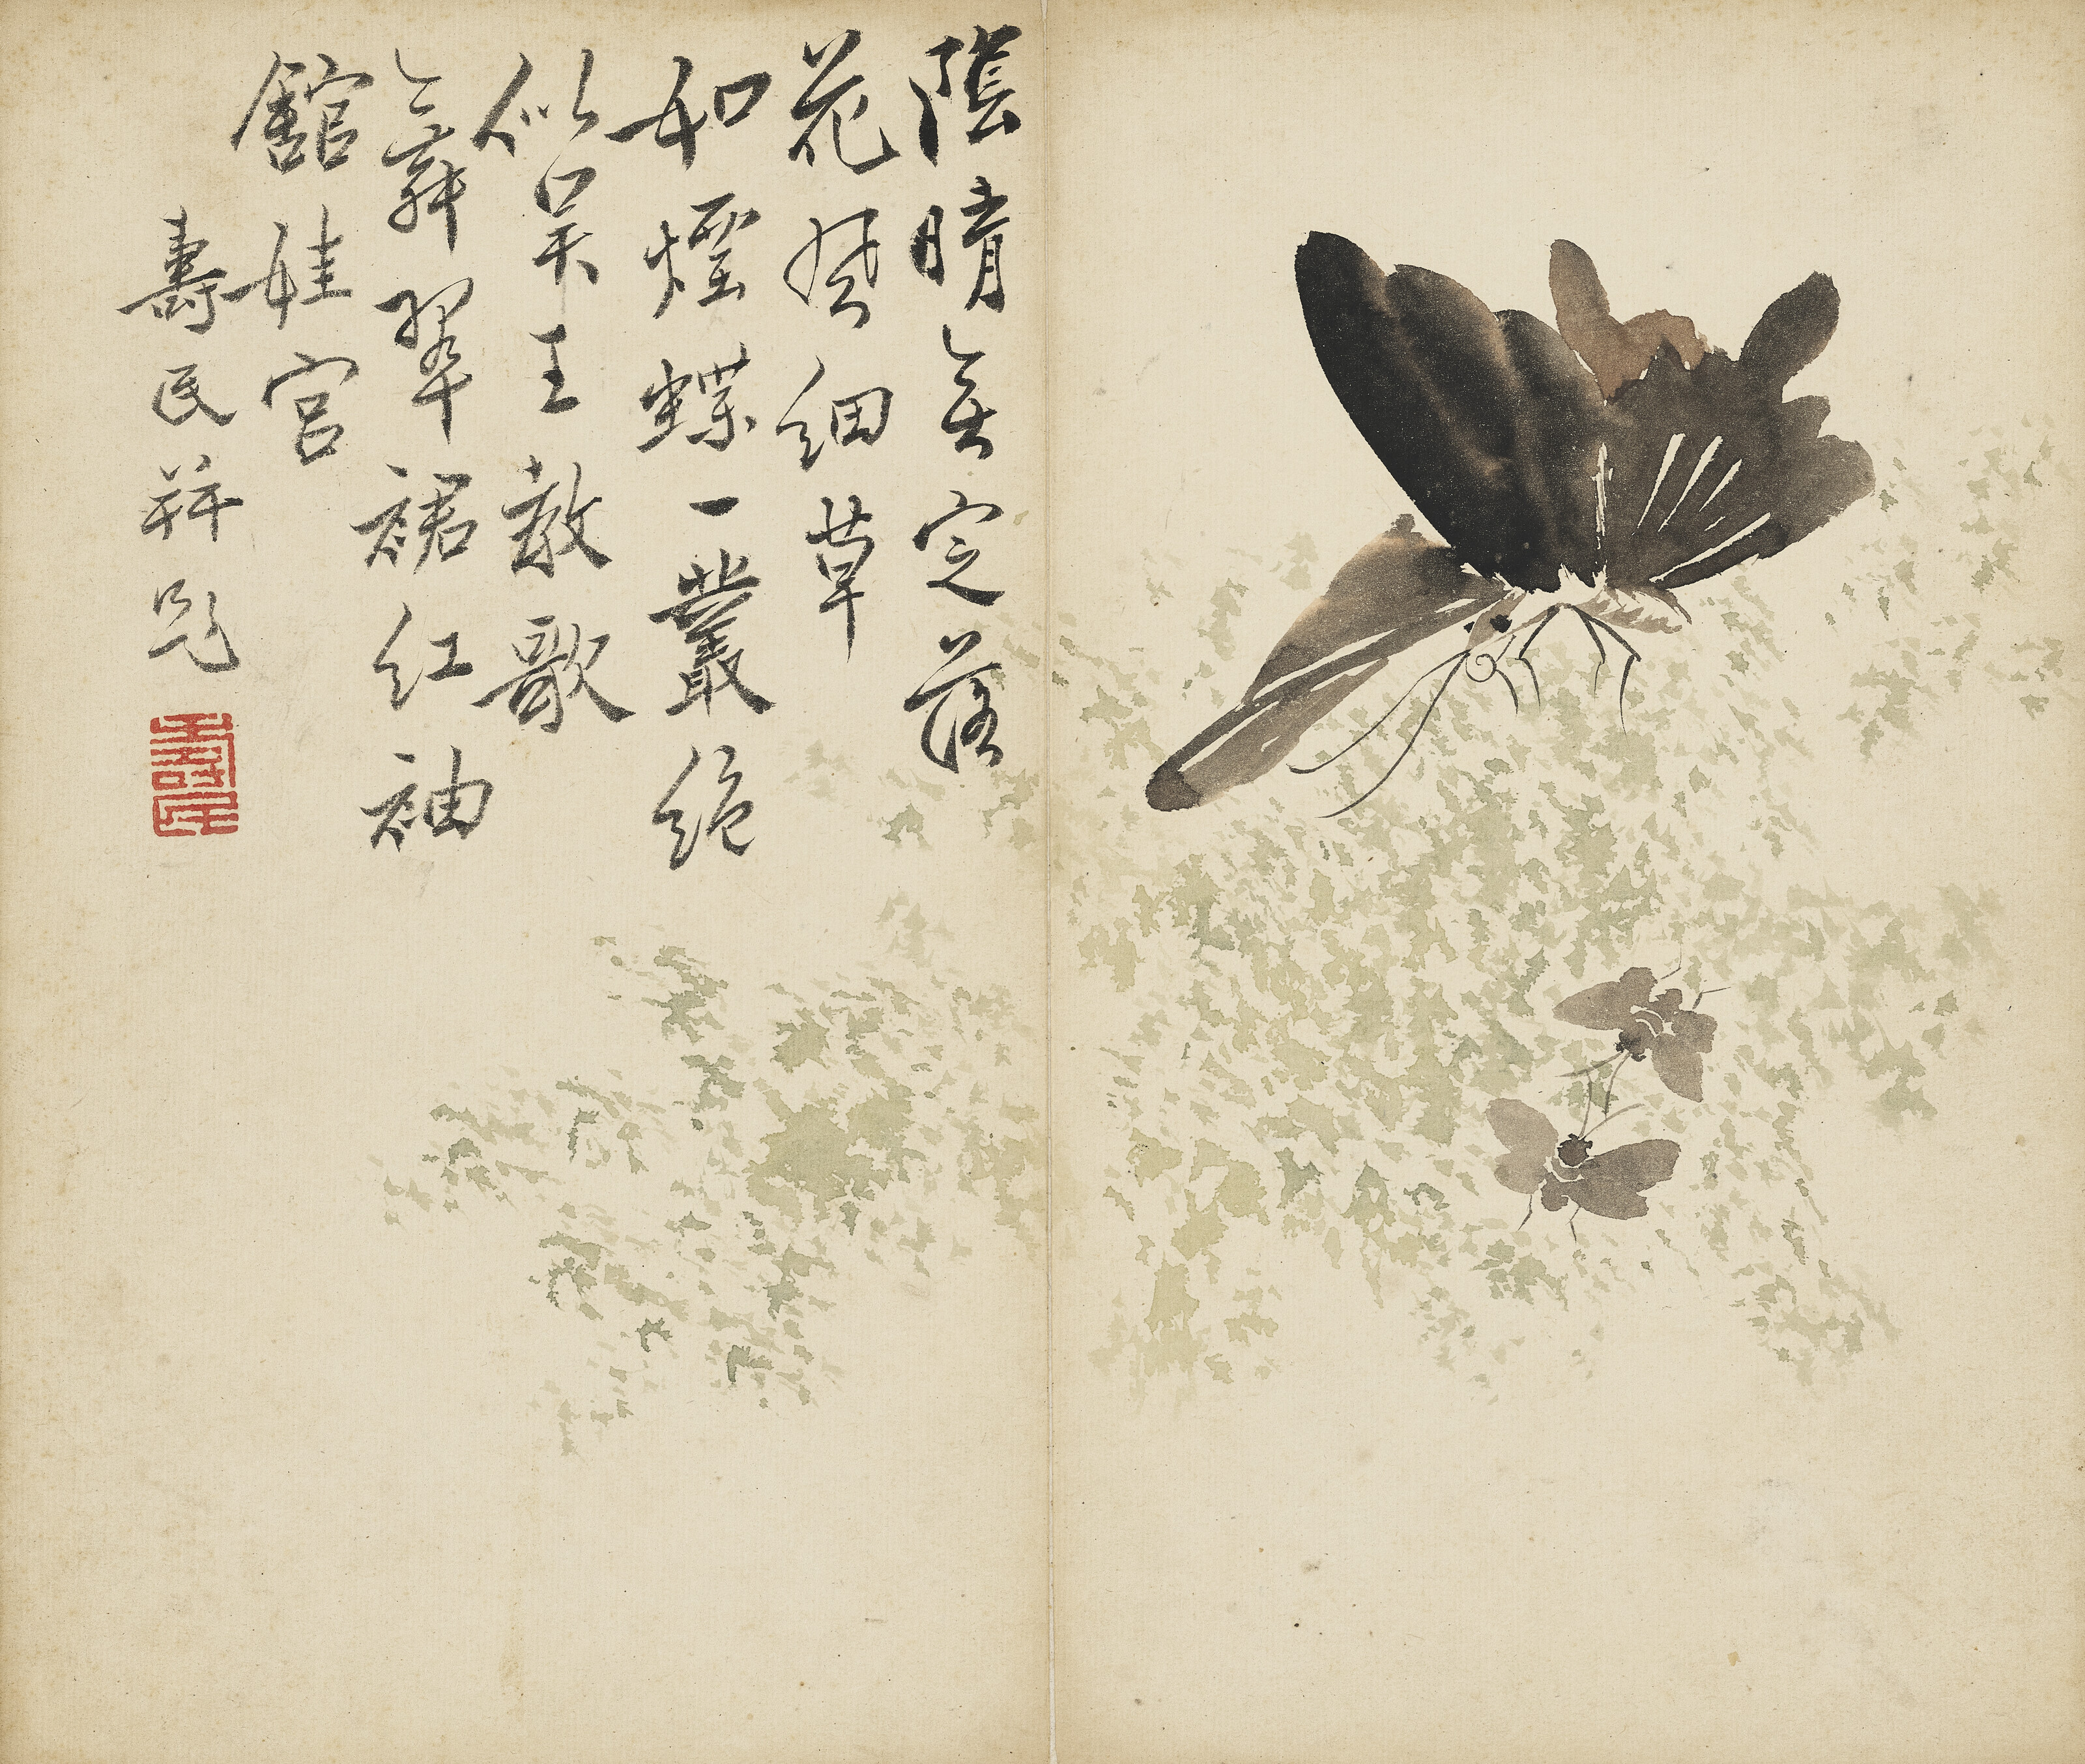 陰晴無定落
花風細草
如煙蝶一叢絕
似吳王教歌
舞翠裙紅袖
館娃宮
壽民并題
壽民